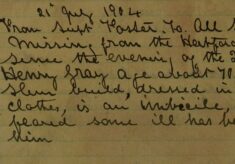 21st July 1904
From Supt Foster. To. All S
Missing from the Hartford
since the evening of the 2
Henry Gray age about 70
slim build, dressed in
clothes, is an imbecile,
feared some ill has be
him